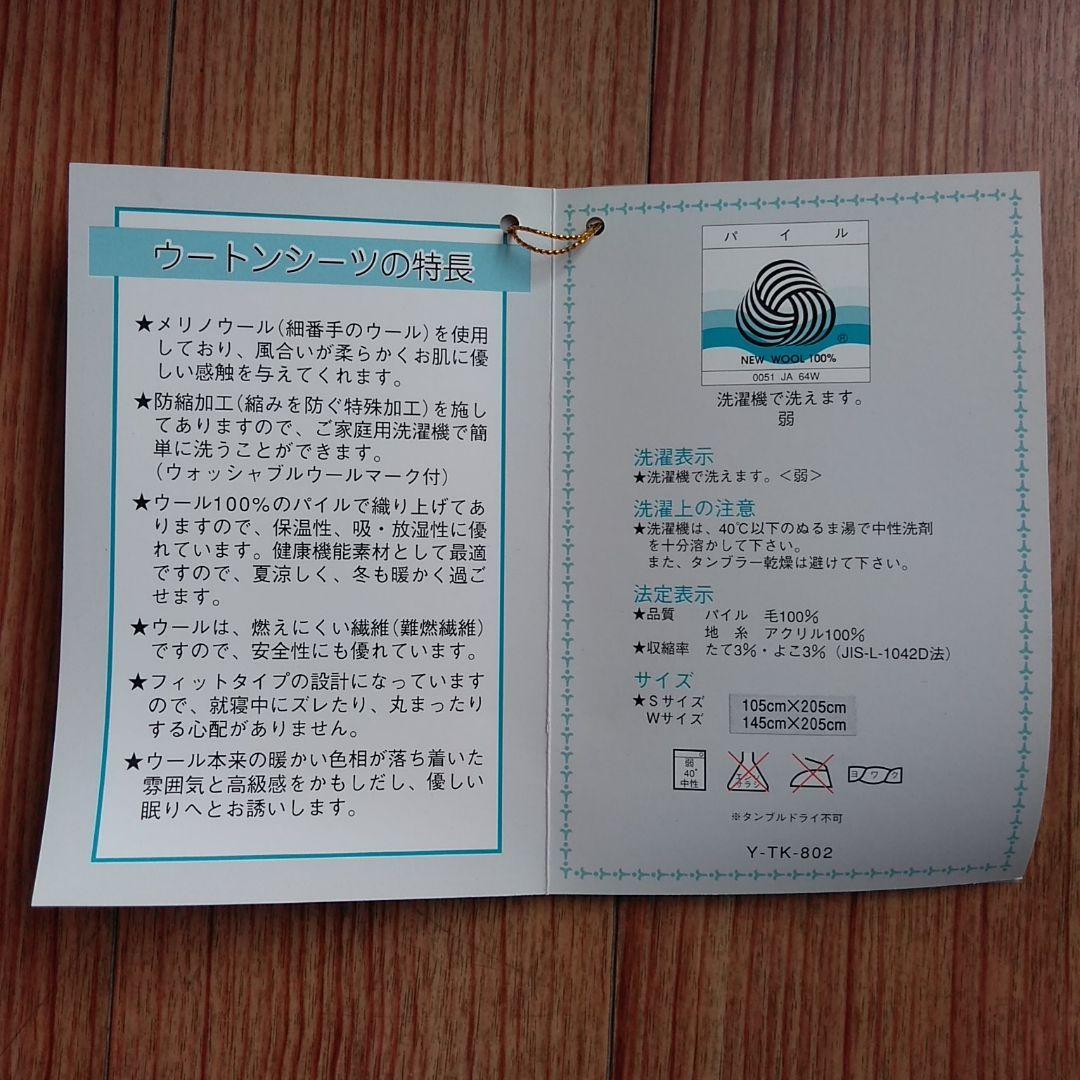 ウートンシーツの特長
★メリノウール(細番手のウール)を使用
しており、風合いが柔らかくお肌に優
しい感触を与えてくれます。
★防縮加工(縮みを防ぐ特殊加工)を施し
てありますので、ご家庭用洗濯機で簡
単に洗うことができます。
(ウォッシャブルウールマーク付)
★ウール100%のパイルで織り上げてあ
りますので、保温性、吸・放湿性に優
れています。健康機能素材として最適
ですので、夏涼しく、冬も暖かく過ご
せます。
★ウールは、燃えにくい繊維(難燃繊維)
ですので、安全性にも優れています。
★フィットタイプの設計になっています
ので、就寝中にズレたり、丸まったり
する心配がありません。
★ウール本来の暖かい色相が落ち着いた
雰囲気と高級感をかもしだし、優しい
眠りへとお誘いします。
パイル
®
NEW WOOL 100%
0051 JA 64W
洗濯機で洗えます。
弱
洗濯表示
★洗濯機で洗えます。<弱>
洗濯上の注意
★洗濯機は、40℃以下のぬるま湯で中性洗剤
を十分溶かして下さい。
また、タンブラー乾燥は避けて下さい。
法定表示
★品質 パイル 毛100%
地糸 アクリル100%
★収縮率 たて3%・よこ3%(JIS-L-1042D法)
サイズ
★Sサイズ 105cm×205cm
Wサイズ 145cm×205cm
弱
40°
中性
エンソ
サラシ
ヨワク
※タンブルドライ不可
Y-TK-802